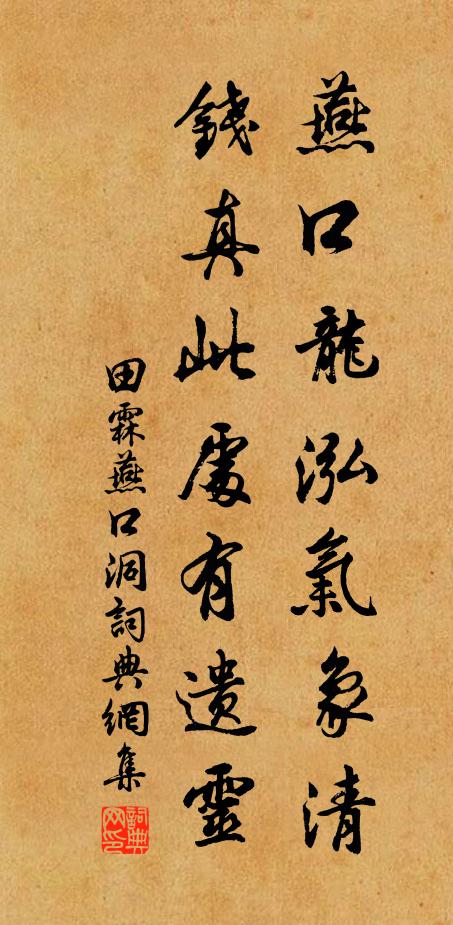 燕口龍泓氣象清
錢真此處有遺靈
田霖燕口洞詞典網集
詞典网印